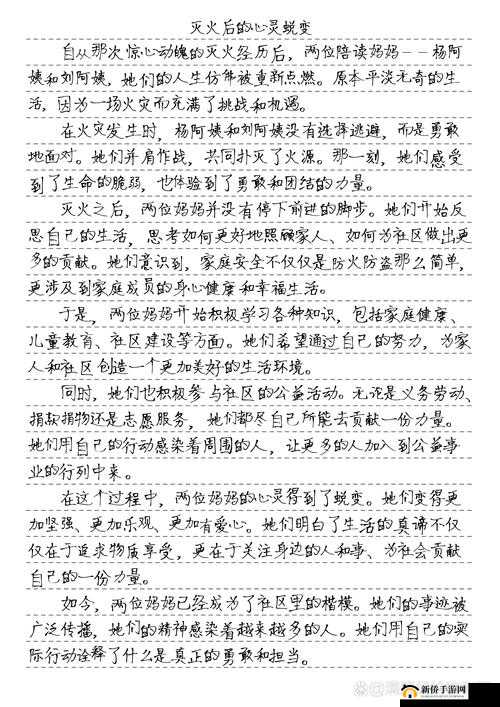 灭火后的心灵蜕变
自从那次惊心动魄的灭火经历后，两位陪读妈妈——杨阿
姨和刘阿姨，她们的人生仿佛被重新点燃。原本平淡无奇的生
活，因为一场火灾而充满了挑战和机遇。
在火灾发生时，杨阿姨和刘阿姨没有选择逃避，而是勇敢
地面对。她们并肩作战，共同扑灭了火源。那一刻，她们感受
到了生命的脆弱，也体验到了勇敢和团结的力量。
灭火之后，两位妈妈并没有停下前进的脚步。她们开始反
思自己的生活，思考如何更好地照顾家人、如何为社区做出更
多的贡献。她们意识到，家庭安全不仅仅是防火防盗那么简单，
更涉及到家庭成员的身心健康和幸福生活。
于是，两位妈妈开始积极学习各种知识，包括家庭健康、
儿童教育、社区建设等方面。她们希望通过自己的努力，为家
人和社区创造一个更加美好的生活环境。
同时，她们也积极参与社区的公益活动。无论是义务劳动、
捐款捐物还是志愿服务，她们都尽自己所能去贡献一份力量。
她们用自己的行动感染着周围的人，让更多的人加入到公益事
业的行列中来。
在这个过程中，两位妈妈的心灵得到了蜕变。她们变得更
加坚强、更加乐观、更加有爱心。她们明白了生活的真谛不仅
仅在于追求物质享受，更在于关注身边的人和事、为社会贡献
自己的一份力量。
如今，两位妈妈已经成为了社区里的楷模。她们的事迹被
广泛传播，她们的精神感染着越来越多的人。她们用自己的实
际行动诠释了什么是真正的勇敢和担当。
新侨手游网